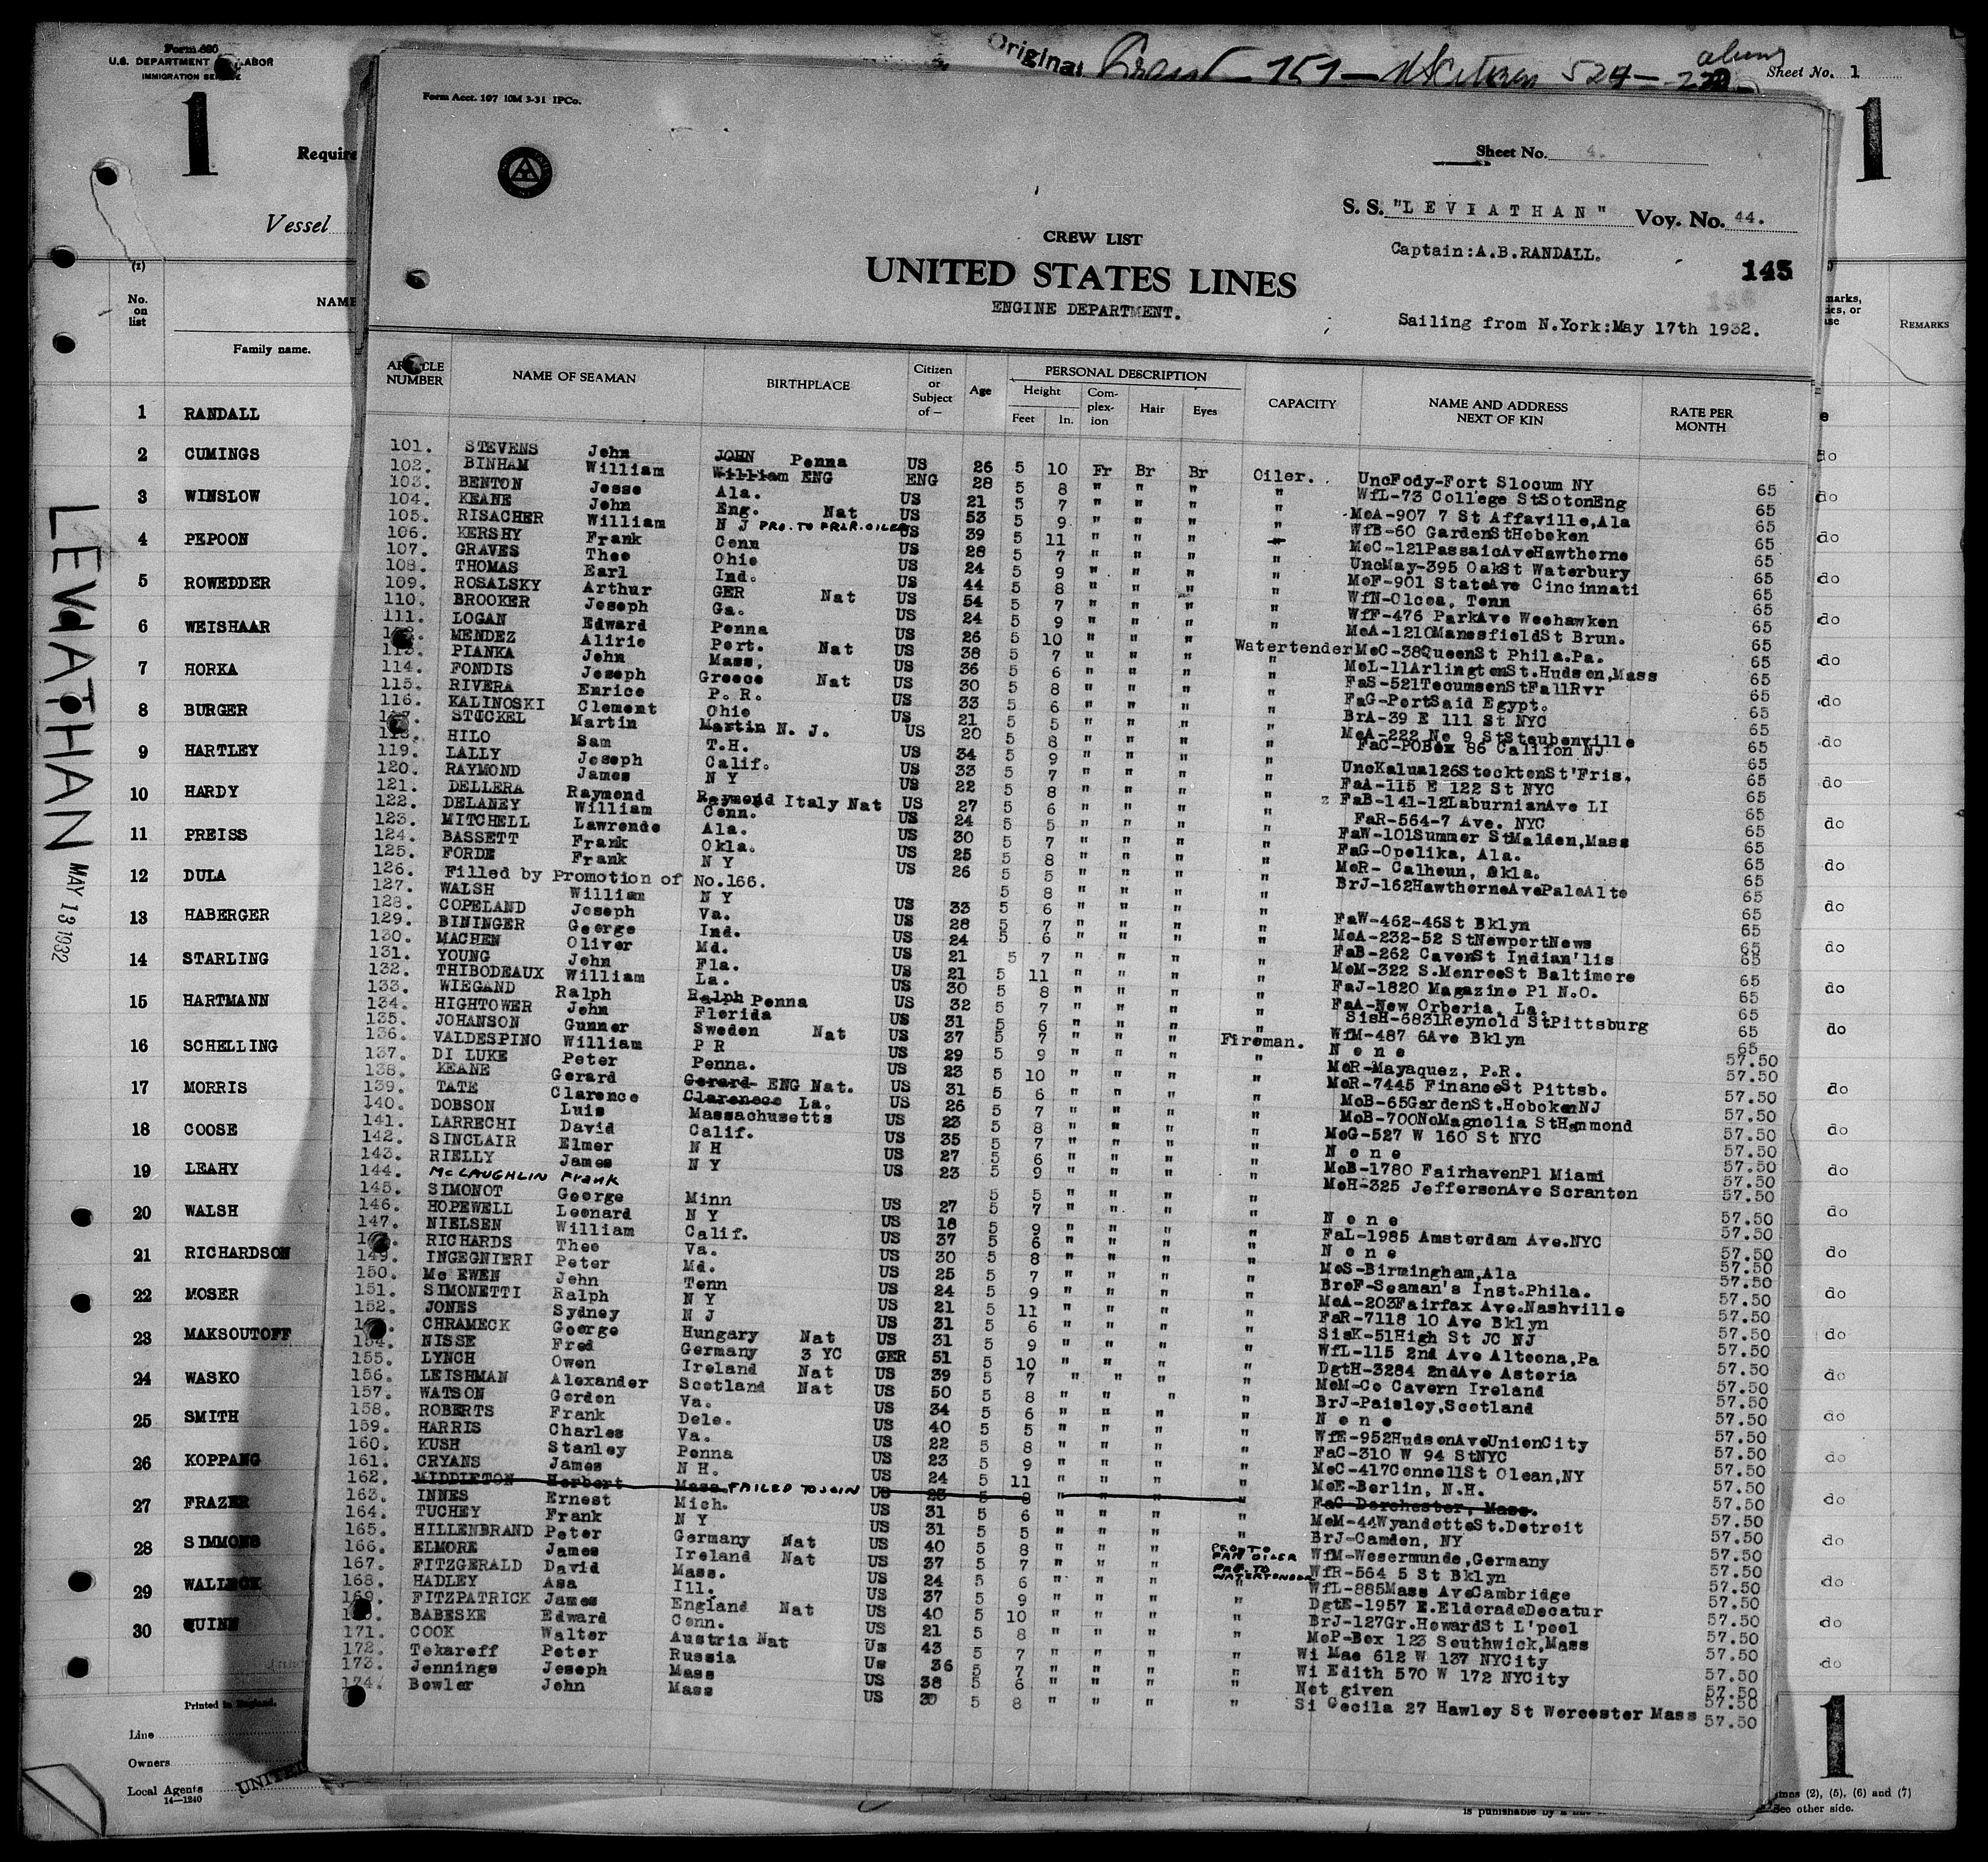 Form 680
U.S. DEPARTMENT LABOR
IMMIGRATION SERVICE
Original
Sheet No. 1
1
Require
Vessel
1
LEVIATHAN MAY 13 1932
(1)
No. on list
NAME
Family name.
REMARKS
1 RANDALL
2 CUMINGS do
3 WINSLOW do
4 PEPOON do
5 ROWEDDER do
6 WEISHAAR do
7 HORKA do
8 BURGER do
9 HARTLEY do
10 HARDY do
11 PREISS do
12 DULA do
13 HABERGER do
14 STARLING do
15 HARTMANN do
16 SCHELLING do
17 MORRIS do
18 COOSE do
19 LEAHY do
20 WALSH do
21 RICHARDSON do
22 MOSER do
23 MAKSOUTOFF do
24 WASKO do
25 SMITH do
26 KOPPANG do
27 FRAZER do
28 SIMMONS do
29 WALLECK do
30 QUINN do
Printed in England.
Line
Owners
Local Agents UNITED
14—1240
1
(2), (5), (6) and (7)
See other side.
is punishable by a
Form Acct. 107 10M 3-31 IPCo.
Sheet No. 4.
S. S. "LEVIATHAN" Voy. No. 44.
Captain:A.B.RANDALL.
145
CREW LIST
UNITED STATES LINES
ENGINE DEPARTMENT.
Sailing from N.York:May 17th 1932.
ARTICLE NUMBER
NAME OF SEAMAN
BIRTHPLACE
Citizen or Subject of —
Age
PERSONAL DESCRIPTION
Height
Feet In.
Complexion
Hair
Eyes
CAPACITY
NAME AND ADDRESS NEXT OF KIN
RATE PER MONTH
101. STEVENS John JOHN Penna US 26 5 10 Fr Br Br Oiler. UncFody-Fort Slocum NY 65
102. BINHAM William William ENG ENG 28 5 8 " " " " WfL-73 College StSotonEng 65
103. BENTON Jesse Ala. US 21 5 7 " " " " MoA-907 7 St Affaville,Ala 65
104. KEANE John Eng. Nat US 53 5 9 " " " " WfB-60 GardenStHoboken 65
105. RISACHER William N J PRO. TO FRLR. OILER US 39 5 11 " " " " MoC-121PassaicAveHawthorne 65
106. KERSHY Frank Conn US 28 5 7 " " " " UncMay-395 OakSt Waterbury 65
107. GRAVES Theo Ohio US 24 5 9 " " " " MoF-901 StateAve Cincinnati 65
108. THOMAS Earl Ind. US 44 5 8 " " " " WfN-Olcea, Tenn 65
109. ROSALSKY Arthur GER Nat US 54 5 7 " " " " WfF-476 ParkAve Weehawken 65
110. BROOKER Joseph Ga. US 24 5 9 " " " " MoA-1210ManesfieldSt Brun. 65
111. LOGAN Edward Penna US 26 5 10 " " " Watertender MoC-38QueenSt Phila.Pa. 65
112. MENDEZ Alirio Port. Nat US 38 5 7 " " " " MoL-11ArlingtonSt.Hudson,Mass 65
113. PIANKA John Mass, US 36 5 6 " " " " FaS-521TecumsenStFallRvr 65
114. FONDIS Joseph Greece Nat US 30 5 8 " " " " FaG-PortSaid Egypt. 65
115. RIVERA Enrico P. R. US 33 5 6 " " " " BrA-39 E 111 St NYC 65
116. KALINOSKI Clement Ohio US 21 5 5 " " " " MoA-222 No 9 StSteubenville 65
117. STOCKEL Martin Martin N. J. US 20 5 8 " " " " FaC-POBox 86 Califon NJ 65
118. HILO Sam T.H. US 34 5 9 " " " " UncKalua126StocktonSt'Fris. 65
119. LALLY Joseph Calif. US 33 5 7 " " " " FaA-115 E 122 St NYC 65
120. RAYMOND James N Y US 22 5 8 " " " " FaB-141-12LaburnianAve LI 65
121. DELLERA Raymond Raymond Italy Nat US 27 5 6 " " " " FaR-564-7 Ave. NYC 65
122. DELANEY William Conn. US 24 5 5 " " " " FaW-101Summer StMalden,Mass 65
123. MITCHELL Lawrende Ala. US 30 5 7 " " " " FaG-Opelika, Ala. 65
124. BASSETT Frank Okla. US 25 5 8 " " " " MoR- Calhoun, Okla. 65
125. FORDE Frank N Y US 26 5 5 " " " " BrJ-162HawthorneAvePaloAlto 65
126. Filled by Promotion of No.166.
127. WALSH William N Y US 33 5 6 " " " " FaW-462-46St Bklyn 65
128. COPELAND Joseph Va. US 28 5 7 " " " " MoA-232-52 StNewportNews 65
129. BININGER George Ind. US 24 5 6 " " " " FaB-262 CavenSt Indian'lis 65
130. MACHEN Oliver Md. US 21 5 7 " " " " MoM-322 S.MonroeSt Baltimore 65
131. YOUNG John Fla. US 21 5 11 " " " " FaJ-1820 Magazine Pl N.O. 65
132. THIBODEAUX William La. US 30 5 8 " " " " FaA-New Orberia, La. 65
133. WIEGAND Ralph Ralph Penna US 32 5 7 " " " " SisH-6831Reynold StPittsburg 65
134. HIGHTOWER John Florida US 31 5 6 " " " " WfM-487 6Ave Bklyn 65
135. JOHANSON Gunner Sweden Nat US 37 5 7 " " " Fireman. None 57.50
136. VALDESPINO William P R US 29 5 9 " " " " MoR-Mayaquez, P.R. 57.50
137. DI LUKE Peter Penna. US 23 5 10 " " " " MoR-7445 FinanceSt Pittsb. 57.50
138. KEANE Gerard Gerard ENG Nat. US 31 5 6 " " " " MoB-65GardenSt.HobokenNJ 57.50
139. TATE Clarence Clarenece La. US 26 5 7 " " " " MoB-700NoMagnolia StHammond 57.50
140. DOBSON Luis Massachusetts US 23 5 8 " " " " MoG-527 W 160 St NYC 57.50
141. LARRECHI David Calif. US 35 5 7 " " " " None 57.50
142. SINCLAIR Elmer N H US 27 5 6 " " " " MoB-1780 FairhavenPl Miami 57.50
143. RIELLY James N Y US 23 5 9 " " " " MoH-325 JeffersonAve Scranton 57.50
144. McLAUGHLIN Frank
145. SIMONOT George Minn US 27 5 7 " " " " None 57.50
146. HOPEWELL Leonard N Y US 18 5 9 " " " " FaL-1985 Amsterdam Ave.NYC 57.50
147. NIELSEN William Calif. US 37 5 6 " " " " None 57.50
148. RICHARDS Theo Va. US 30 5 8 " " " " MoS-Birmingham,Ala 57.50
149. INGEGNIERI Peter Md. US 25 5 7 " " " " BroF-Seaman's Inst.Phila. 57.50
150. Mc EWEN John Tenn US 24 5 9 " " " " MoA-203Fairfax Ave.Nashville 57.50
151. SIMONETTI Ralph N Y US 21 5 11 " " " " FaR-7118 10 Ave Bklyn 57.50
152. JONES Sydney N J US 31 5 6 " " " " SisK-51High St JC NJ 57.50
153. CHRAMECK George Hungary Nat US 31 5 9 " " " " WfL-115 2nd Ave Altoona,Pa 57.50
154. NISSE Fred Germany 3 YC GER 51 5 10 " " " " DgtH-3284 2ndAve Astoria 57.50
155. LYNCH Owen Ireland Nat US 39 5 7 " " " " MoM-Co Cavern Ireland 57.50
156. LEISHMAN Alexander Scotland Nat US 50 5 8 " " " " BrJ-Paisley,Scotland 57.50
157. WATSON Gordon Va. US 34 5 6 " " " " None 57.50
158. ROBERTS Frank Dele. US 40 5 5 " " " " WfE-952HudsonAveUnionCity 57.50
159. HARRIS Charles Va. US 22 5 8 " " " " FaC-310 W 94 StNYC 57.50
160. KUSH Stanley Penna US 23 5 9 " " " " MoC-417ConnellSt Olean,NY 57.50
161. CRYANS James N H. US 24 5 11 " " " " MoE-Berlin, N.H. 57.50
162. MIDDLETON Herbert Mass FAILED TO JOIN US 23 5 8 " " " " FaC Dorchester, Mass. 57.50
163. INNES Ernest Mich. US 31 5 6 " " " " MoM-44WyandotteSt.Detroit 57.50
164. TUCHEY Frank N Y US 31 5 5 " " " " BrJ-Camden, NY 57.50
165. HILLENBRAND Peter Germany Nat US 40 5 8 " " " PRO TO FAN OILER WfM-Wesermunde,Germany 57.50
166. ELMORE James Ireland Nat US 37 5 7 " " " PRO. TO WATERTENDER WfR-564 5 St Bklyn 57.50
167. FITZGERALD David Mass. US 24 5 6 " " " " WfL-885Mass AveCambridge 57.50
168. HADLEY Asa Ill. US 37 5 9 " " " " DgtE-1957 E.EldoradoDecatur 57.50
169. FITZPATRICK James England Nat US 40 5 10 " " " " BrJ-127Gr.HowardSt L'pool 57.50
170. BABESKE Edward Conn. US 21 5 8 " " " " MoP-Box 123 Southwick,Mass 57.50
171. COOK Walter Austria Nat Us 43 5 7 " " " " Wi Mae 612 W 137 NYCity 57.50
172. Tokareff Peter Russia Us 36 5 7 " " " " Wi Edith 570 W 172 NYCity 57.50
173. Jennings Joseph Mass US 38 5 6 " " " " Not given 57.50
174. Bowler John Mass US 30 5 8 " " " " Si Cecila 27 Hawley St Worcester Mass 57.50